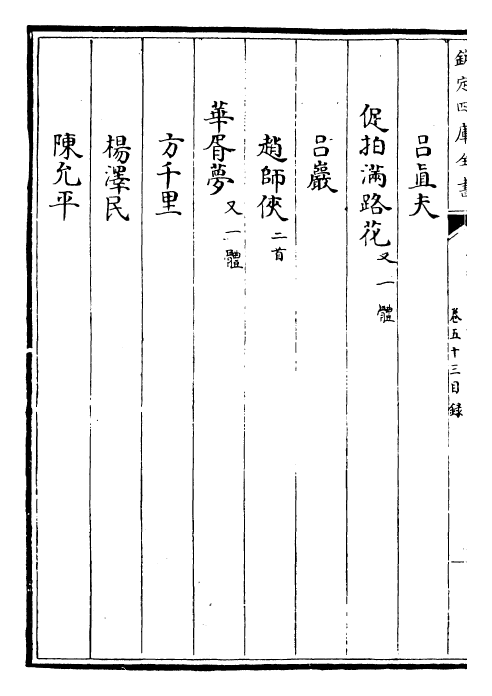 欽定四庫全書
卷五十三目錄
呂直夫
促拍滿路花又一體
呂巖
趙師俠二首
華胥夢又一體
方千里
楊澤民
陳允平